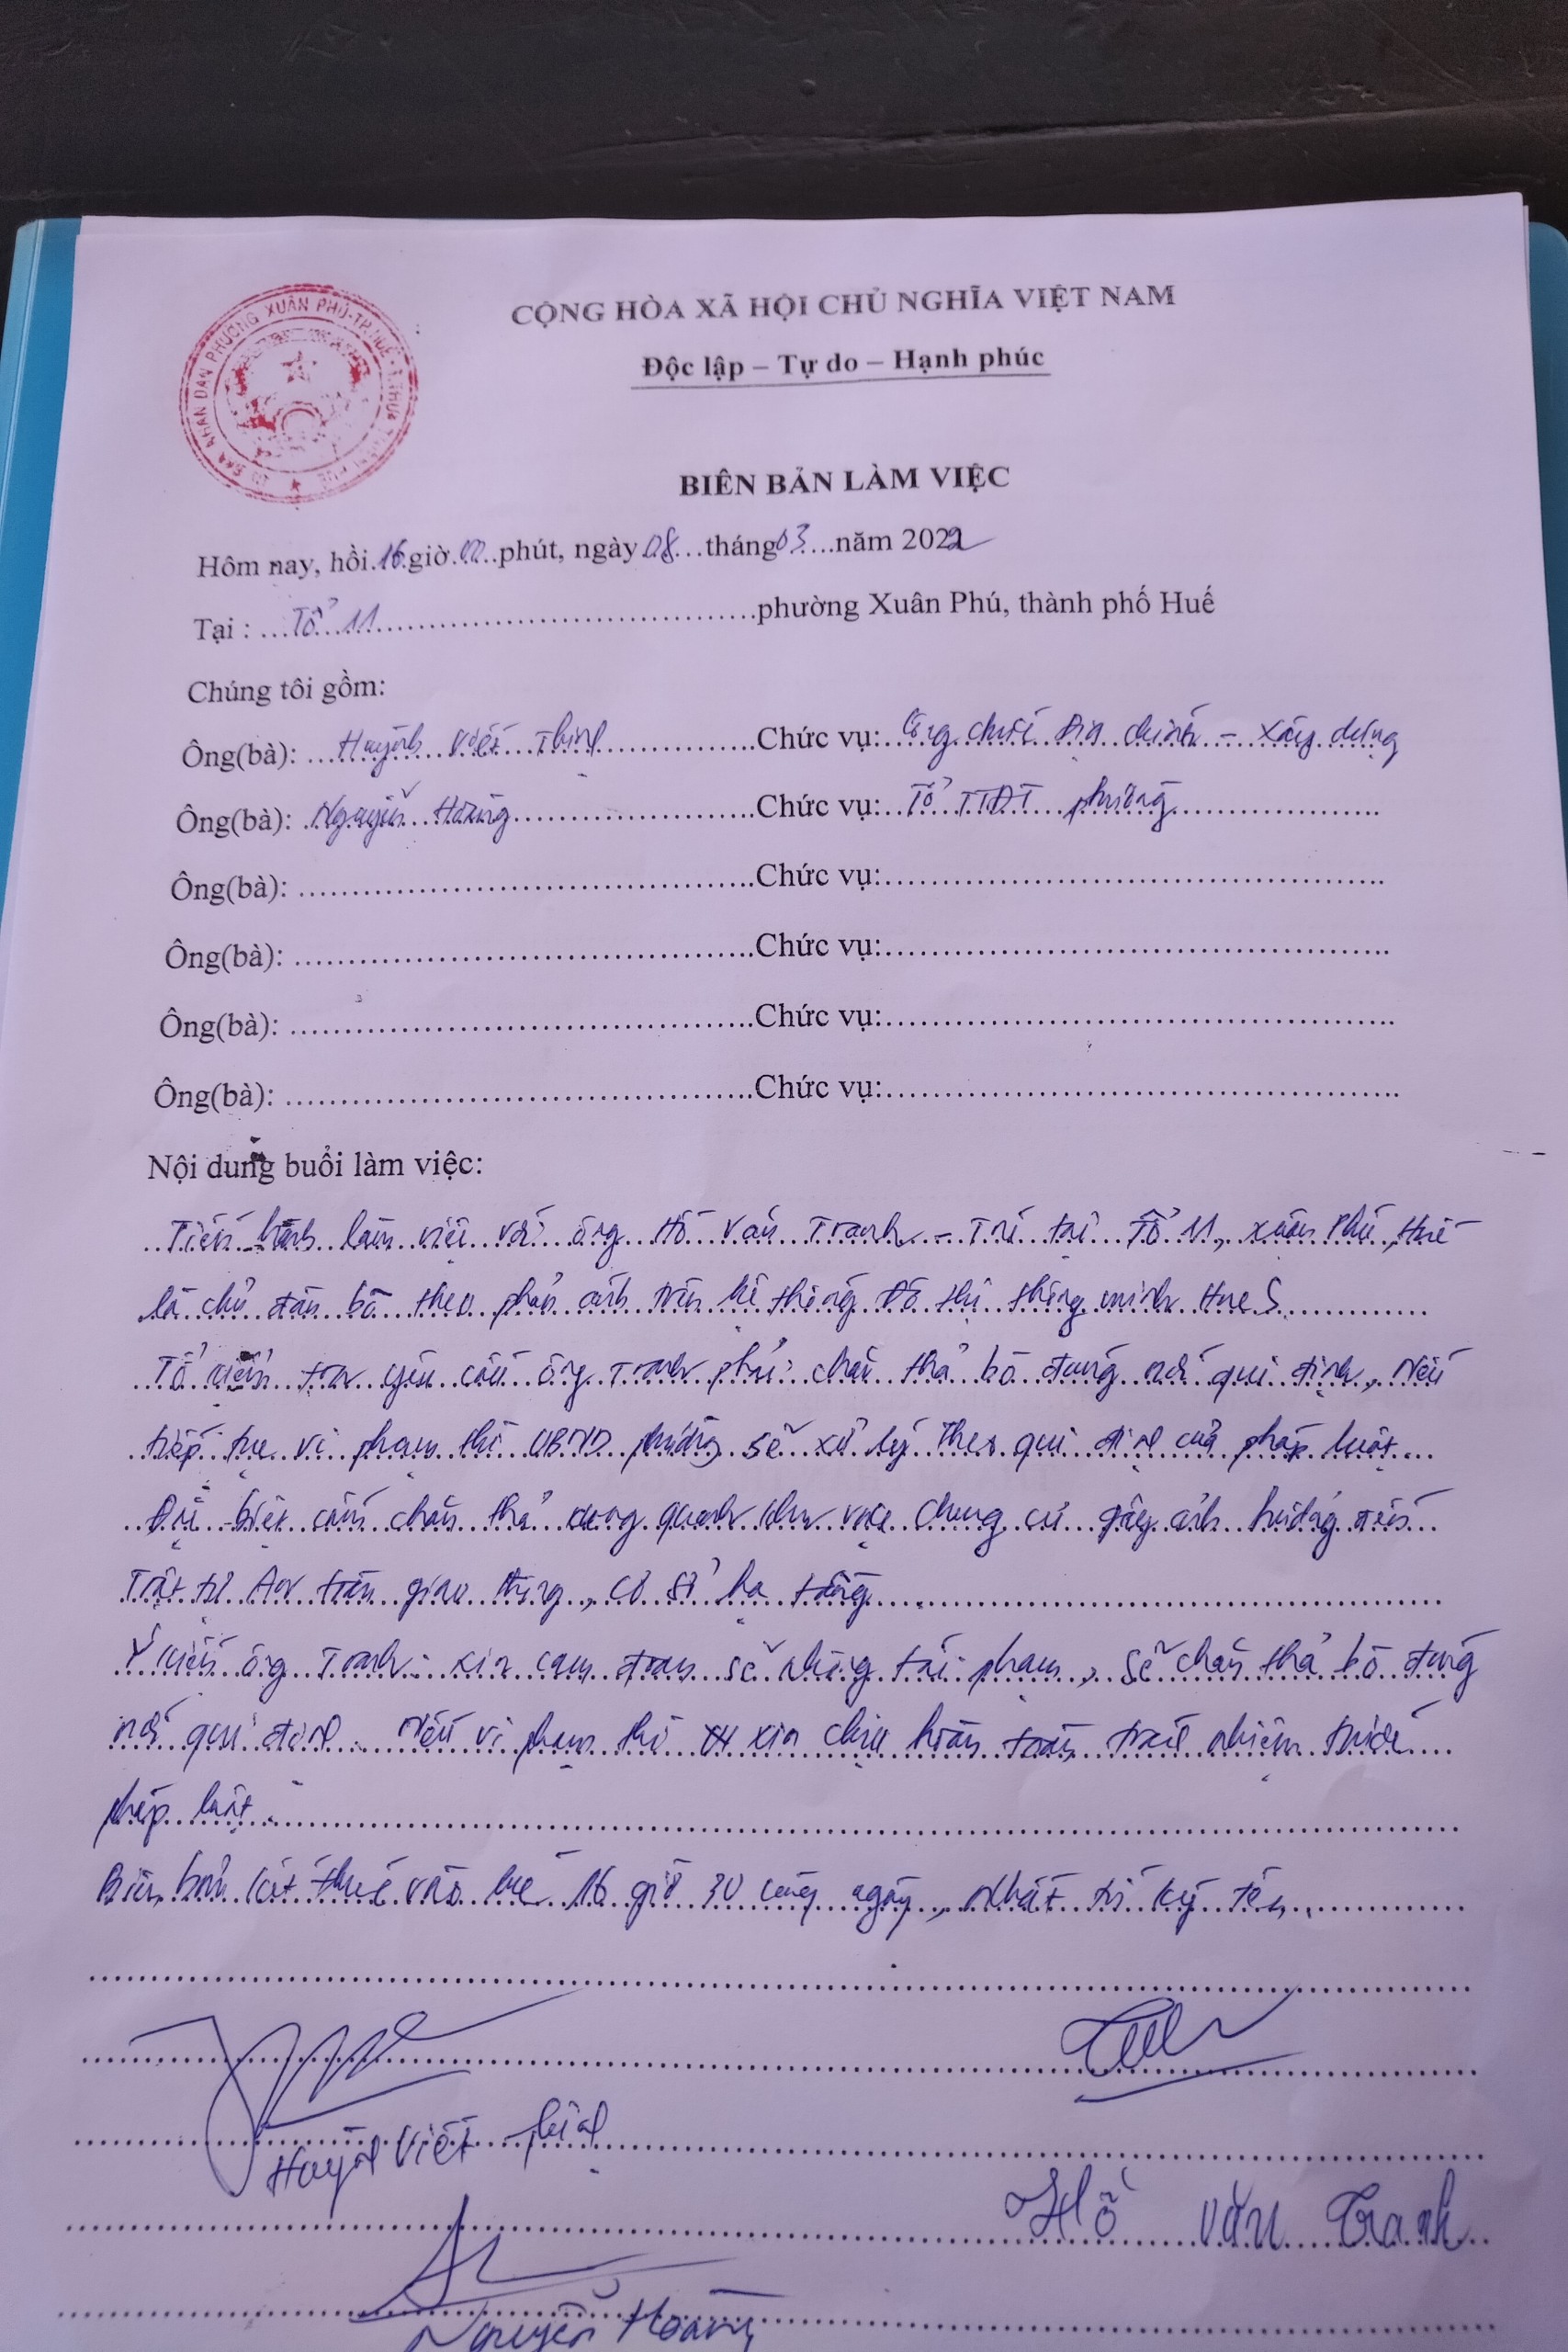 CỘNG HÒA XÃ HỘI CHỦ NGHĨA VIỆT NAM
Độc lập – Tự do – Hạnh phúc
ỦY BAN NHÂN DÂN PHƯỜNG XUÂN PHÚ-TP.HUẾ-T.THỪA THIÊN HUẾ
BIÊN BẢN LÀM VIỆC
Hôm nay, hồi 16 giờ 00 phút, ngày 08 tháng 03 năm 2022
Tại : Tổ 11 phường Xuân Phú, thành phố Huế
Chúng tôi gồm:
Ông(bà): Huỳnh Viết Thịnh Chức vụ: Công chức Địa chính - Xây dựng
Ông(bà): Nguyễn Hoàng Chức vụ: Tổ TTĐT phường
Ông(bà): Chức vụ:
Ông(bà): Chức vụ:
Ông(bà): Chức vụ:
Ông(bà): Chức vụ:
Nội dung buổi làm việc:
Tiến hành làm việc với ông Hồ Văn Tranh - Trú tại Tổ 11, Xuân Phú, Huế
là chủ đàn bò theo phản ánh trên hệ thống Đô thị thông minh Hue S
Tổ kiểm tra yêu cầu ông Tranh phải chăn thả bò đúng nơi qui định, Nếu
tiếp tục vi phạm thì UBND phường sẽ xử lý theo qui định của pháp luật.
Đặc biệt cấm chăn thả xung quanh khu vực Chung cư gây ảnh hưởng đến
Trật tự An toàn giao thông, cơ sở hạ tầng
Ý kiến ông Tranh: xin cam đoan sẽ không tái phạm, sẽ chăn thả bò đúng
nơi qui định. Nếu vi phạm thì xin chịu hoàn toàn trách nhiệm trước
pháp luật.
Biên bản kết thúc vào lúc 16 giờ 30 cùng ngày, nhất trí ký tên.
Huỳnh Viết Thịnh
Hồ Văn Tranh
Nguyễn Hoàng